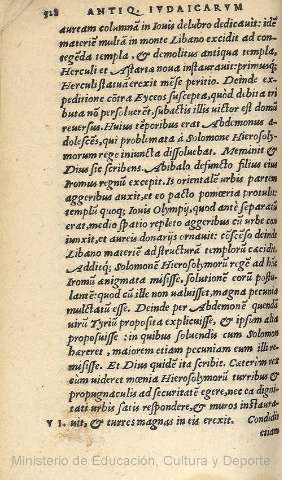 518 ANTIQ. IVDAICARVM
auream columnã in Iouis delubro dedicauit: idẽ
materiẽ multã in monte Libano excidit ad con-
tegẽda templa, & demolitus antiqua templa,
Herculi et Astartæ noua instaurauit: primusq;
Herculi statuã erexit mẽse peritio. Deinde ex-
peditione cõtra Eyceos suscepta, quòd debita tri
buta nõ persoluerẽt. subactis illis victor est domũ
reuersus. Huius tẽporibus erat Abdemonus a-
dolescẽs, qui problemata à Solomone Hierosoly-
morum rege iniuncta dissoluebat. Meminit &
Dius sic scribens. Abibalo defuncto filius eius
Iromus regnũ excepit. Is orientalẽ vrbis partem
aggeribus auxit, et eo pacto pomœria protulit:
templũ quoq; Iouis Olympij, quod antè separatũ
erat, medio spatio repleto aggeribus cũ vrbe con
iunxit, et aureis donarijs ornauit: cõscẽso deinde
Libano materiẽ ad structurã templorũ cæcidit.
Additq; Solomonẽ Hierosolymorũ regẽ ad hũc
Iromũ ænigmata misisse, solutionẽ corũ postu-
lantẽ: quod cũ ille non valuisset, magna pecunia
mulctatũ esse. Deinde per Abdemonẽ quendã
virũ Tyriũ proposita explicuisse, & ipsum alia
proposuisse: in quibus soluendis cum Solomon
hæreret, maiorem etiam pecuniam cum illi re-
misisse. Et Dius quidẽ ita scribit. Cæterim rex
cum videret mœnia Hierosolymorũ turribus &
propugnaculis ad securitatẽ egere, nec ea digni-
tati vrbis satis respondere, & muros instaura-
VI. uit, & turres magnas in eis erexit. Condidit
etiam
Ministerio de Educación, Cultura y Deporte